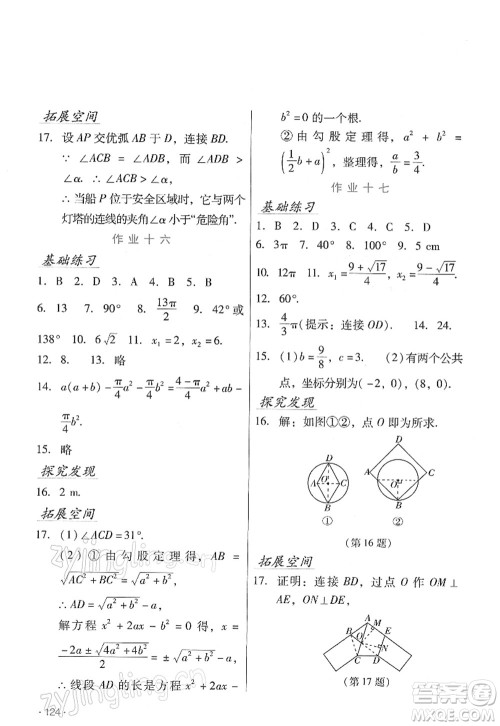 拓展空间
17. 设 AP 交优弧 AB 于 D，连接 BD.
∵ ∠ACB = ∠ADB，而∠ADB >
∠α. ∴ ∠ACB > ∠α.
∴ 当船 P 位于安全区域时，它与两个
灯塔的连线的夹角∠α 小于“危险角”.
作业十六
基础练习
1. B 2. D 3. A 4. D 5. B
6. 13 7. 90° 8. 13π/2 9. 42°或
138° 10. 6√2 11. x₁=2, x₂=3
12. 8. 13. 略
14. a(a+b) − π/4 a² − π/4 b² = (4−π)/4 a² + ab −
π/4 b².
15. 略
探究发现
16. 2 m.
拓展空间
17. (1) ∠ACD = 31°.
(2) ① 由勾股定理得，AB =
√(AC² + BC²) = √(a² + b²)
∴ AD = √(a² + b²) − a
解方程 x² + 2ax − b² = 0 得，x =
(−2a ± √(4a² + 4b²))/2 = ±√(a² + b²) − a
∴ 线段 AD 的长是方程 x² + 2ax −
· 124 ·
b² = 0 的一个根.
②由勾股定理得，a² + b² =
(1/2 b + a)². a/b = 3/4.
作业十七
基础练习
1. B 2. A 3. D 4. C 5. B
6. 3π 7. 30° 8. 3 9. 5 cm
10. 12π 11. x₁ = (9+√17)/4, x₂ = (9−√17)/4
12. 60°.
13. 4/3 π (提示：连接 OD). 14. 24.
15. (1) b = 9/8, c = 3. (2) 有两个公共
点，坐标分别为(−2, 0), (8, 0).
探究发现
16. 解：如图①②，点 O 即为所求.
D
A O C
B
①
D
A O C
B
②
(第 16 题)
拓展空间
17. 证明：连接 BD，过点 O 作 OM ⊥
AE，ON ⊥ DE,
A M
B O E
N
C D
(第 17 题)
zyjingling.com
zyjingling.com